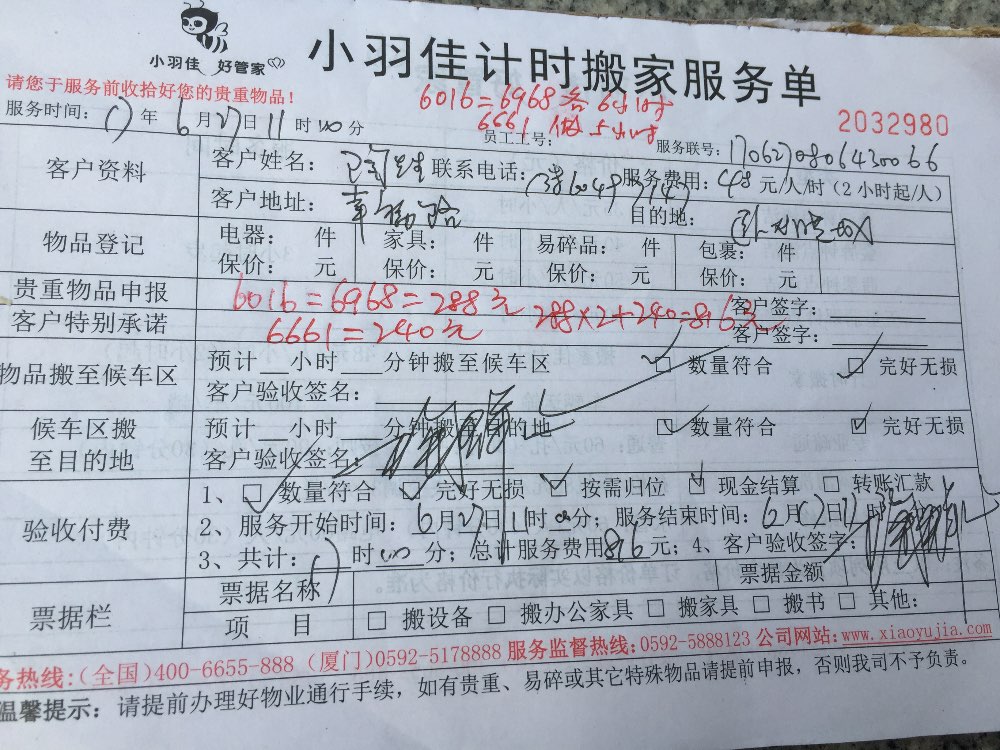 小羽佳 好管家
小羽佳计时搬家服务单
请您于服务前收拾好您的贵重物品！
6016=6968各6小时
6661做5小时
2032980
服务时间：17年6月27日11时00分 员工工号： 服务联号：
客户资料
客户姓名： 联系电话： 服务费用：48元/人/时（2小时起/人）
客户地址： 目的地：
物品登记
电器： 件 家具： 件 易碎品： 件 包裹： 件
保价： 元 保价： 元 保价： 元 保价： 元
贵重物品申报 6016=6968=288元 客户签字：
客户特别承诺 6661=240元 288×2+240=816元 客户签字：
物品搬至候车区
预计__小时__分钟搬至候车区 ☑ 数量符合 ☑ 完好无损
客户验收签名：
候车区搬至目的地
预计__小时__分钟搬至目的地 ☑ 数量符合 ☑ 完好无损
客户验收签名：
验收付费
1、☑ 数量符合 ☑ 完好无损 ☑ 按需归位 ☑ 现金结算 □ 转账汇款
2、服务开始时间：6月27日11时00分；服务结束时间：6月 日 时
3、共计： 时00分；总计服务费用816元；4、客户验收签字：
票据栏
票据名称 票据金额
项 目 □ 搬设备 □ 搬办公家具 □ 搬家具 □ 搬书 □ 其他：
务热线：(全国)400-6655-888 (厦门)0592-5178888 服务监督热线：0592-5888123 公司网站：www.xiaoyujia.com
温馨提示：请提前办理好物业通行手续，如有贵重、易碎或其它特殊物品请提前申报，否则我司不予负责。